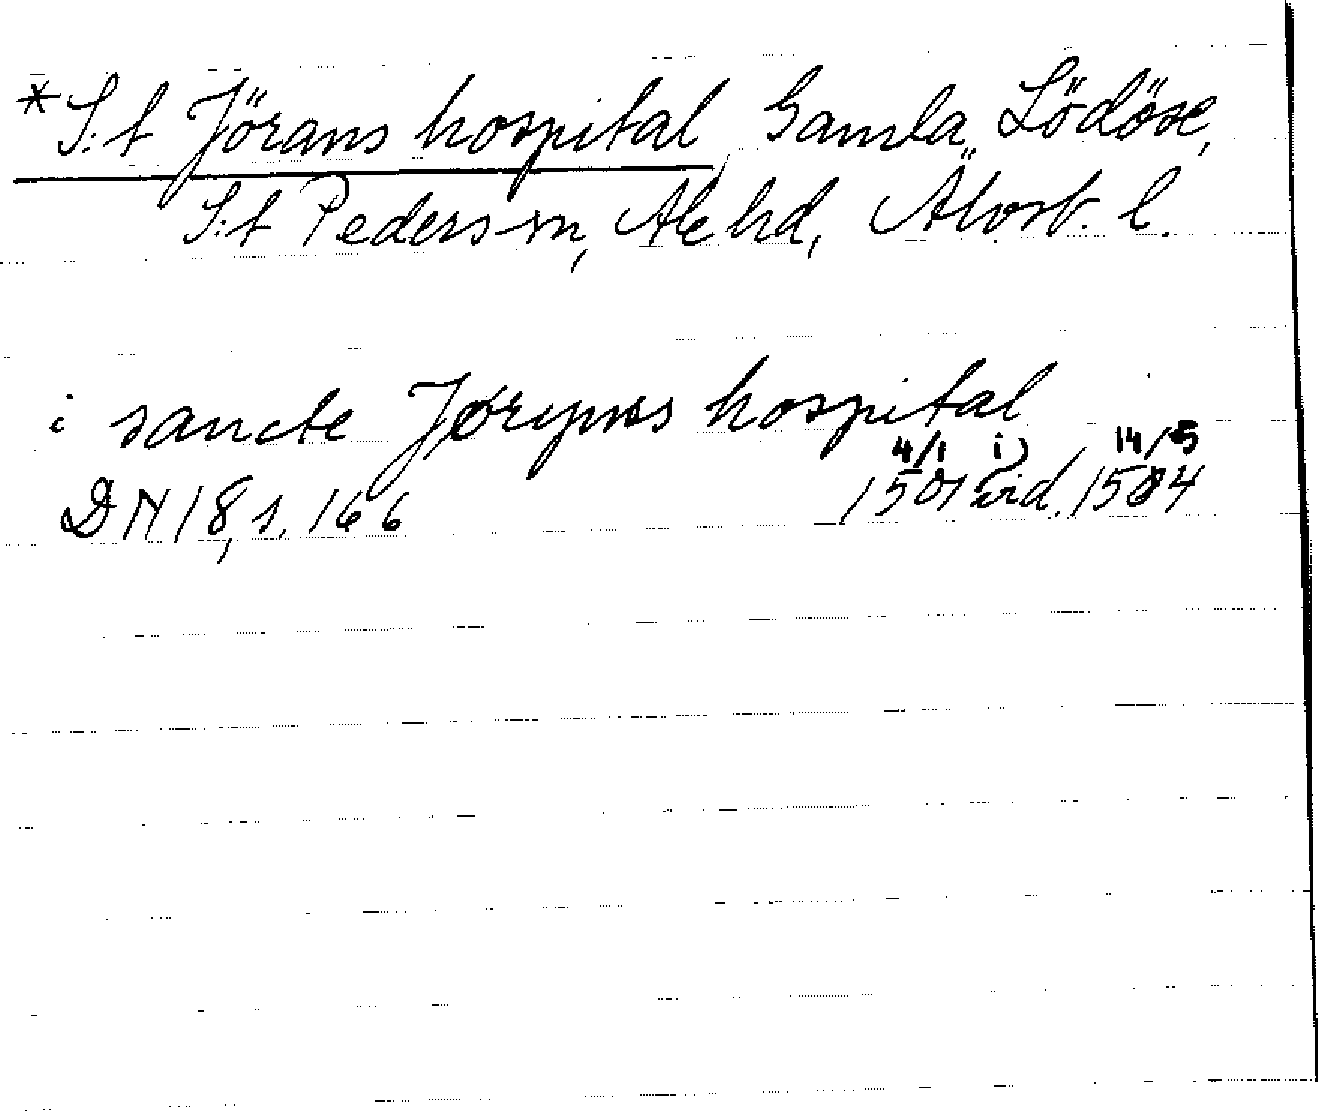 *S:t Jörans hospital, Gamla Lödöse,
S:t Peders sn, Ale hd, Älvsb. l.
i sancte Jørynss hospital
4/1 i) 14/5
DN 18, s. 166 1501 vid. 1504